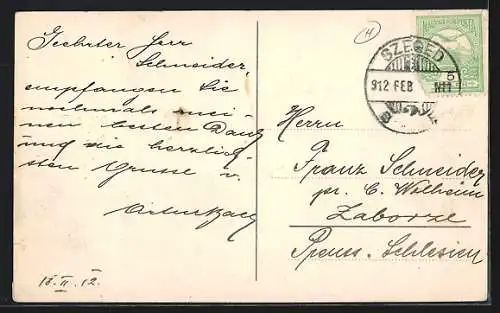 Geehrter Herr
Schneider,
empfangen Sie
nochmals mei-
nen besten Dank
und die herzlig-
sten Grusse v.
18.II.12.
(14
SZEGED
912 FEB
5
Herrn
Franz Schneider
pr. C. Wolheim
Zaborze
Preuss.-Schlesien